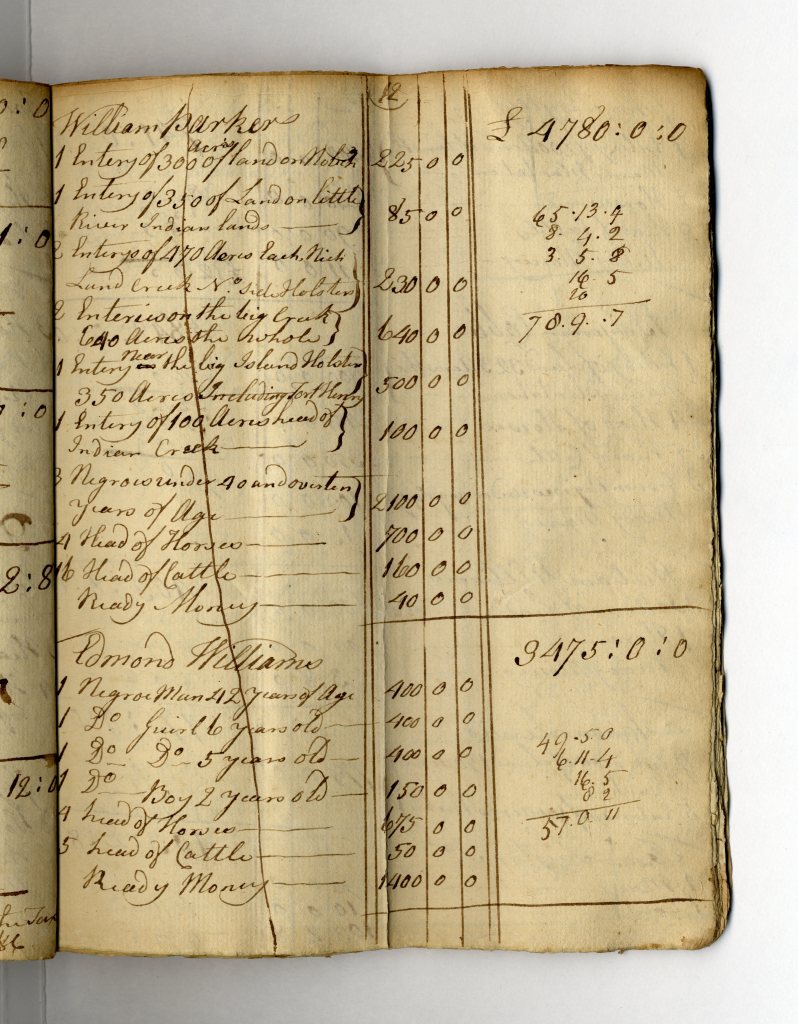 0:0
1:0
0:0
2:8
12:0
the Tax
12
William Parkers £ 4780:0:0
1 Entery of 300 Acres of land on 225 0 0
1 Entery of 350 of Land on little
River Indian lands 85 0 0
2 Enterys of 470 Acres Each Rich
Land Creek No. side Holsten 230 0 0
2 Enteries on the big Creek
640 Acres the whole 640 0 0
1 Entery Near the big Island Holsten
350 Acres Including Fort Henry 500 0 0
1 Entery of 100 Acres head of
Indian Creek 100 0 0
3 Negroes under 40 and over ten
Years of Age 2100 0 0
4 Head of Horses 700 0 0
16 Head of Cattle 160 0 0
Ready Money 40 0 0
65.13.4
8.4.2
3.5.8
16.5
10
78.9.7
Edmond Williams 3475:0:0
1 Negroe Man 42 years of Age 400 0 0
1 Do Guirl 6 years old 400 0 0
1 Do Do 5 years old 400 0 0
1 Do Boy 2 years old 150 0 0
4 head of Horses 675 0 0
5 head of Cattle 50 0 0
Ready Money 1400 0 0
49.5.0
6.11.4
16.5
8 2
57.0 11